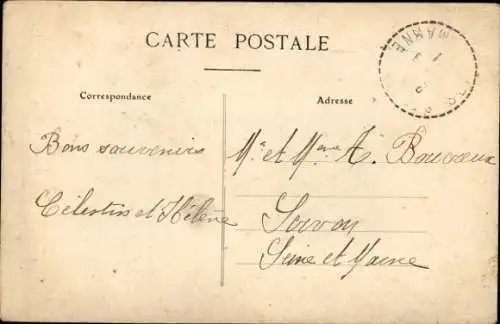 CARTE POSTALE
MARNE
Correspondance
Adresse
Bons souvenirs
Célestins et Hélène
Mr et Mme A.
Servon
Seine et Marne